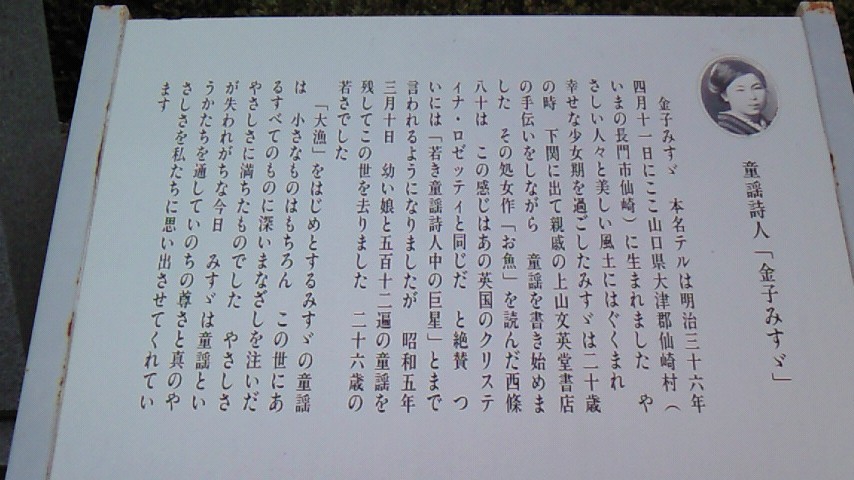 童謡詩人「金子みすゞ」
金子みすゞ　本名テルは明治三十六年
四月十一日にここ山口県大津郡仙崎村（
いまの長門市仙崎）に生まれました　や
さしい人々と美しい風土にはぐくまれ
幸せな少女期を過ごしたみすゞは二十歳
の時　下関に出て親戚の上山文英堂書店
の手伝いをしながら　童謡を書き始めま
した　その処女作「お魚」を読んだ西條
八十は　この感じはあの英国のクリステ
ィナ・ロゼッティと同じだ　と絶賛　つ
いには「若き童謡詩人中の巨星」とまで
言われるようになりましたが　昭和五年
三月十日　幼い娘と五百十二遍の童謡を
残してこの世を去りました　二十六歳の
若さでした
「大漁」をはじめとするみすゞの童謡
は　小さなものはもちろん　この世にあ
るすべてのものに深いまなざしを注いだ
やさしさに満ちたものでした　やさしさ
が失われがちな今日　みすゞは童謡とい
うかたちを通していのちの尊さと真のや
さしさを私たちに思い出させてくれてい
ます